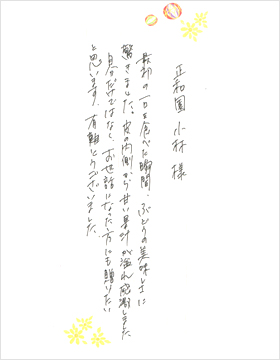 正和園 小林 様
最初の一口を食べた瞬間、ぶどうの美味しさに
驚きました。皮の内側から甘い果汁が溢れ感激しました。
自分だけではなく、お世話になった方にも贈りたい
と思います。有難とうございました。